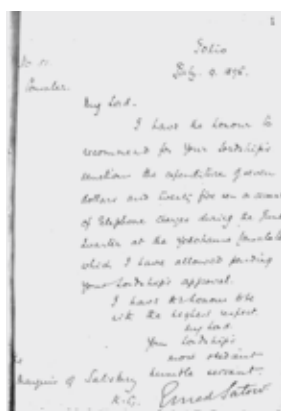 1
Tokio
July. 9. 1896.
No 11.
Consular.
My Lord.
I have the honour to
recommend for Your Lordship's
sanction the expenditure of seven
dollars and twenty five sen on account
of telephone charges during the June
Quarter at the Yokohama Consulate
which I have allowed pending
Your Lordship's approval.
I have the honour to be
with the highest respect
My Lord
Your Lordship's
most obedient
humble servant.
The
Marquess of Salisbury
K.G.
Ernest Satow